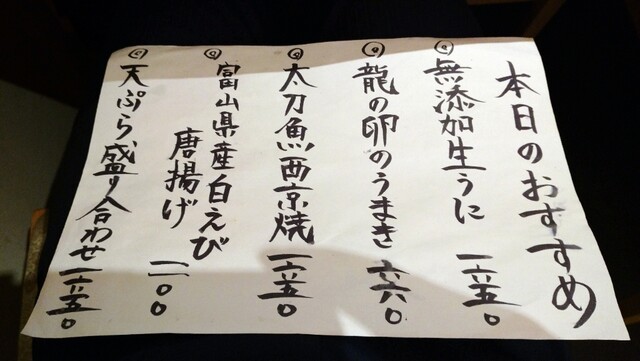 本日のおすすめ
無添加生うに 一六五〇
龍の卵のうまき 六六〇
太刀魚西京焼 一六五〇
富山県産白えび
唐揚げ 一一〇〇
天ぷら盛り合わせ 一六五〇